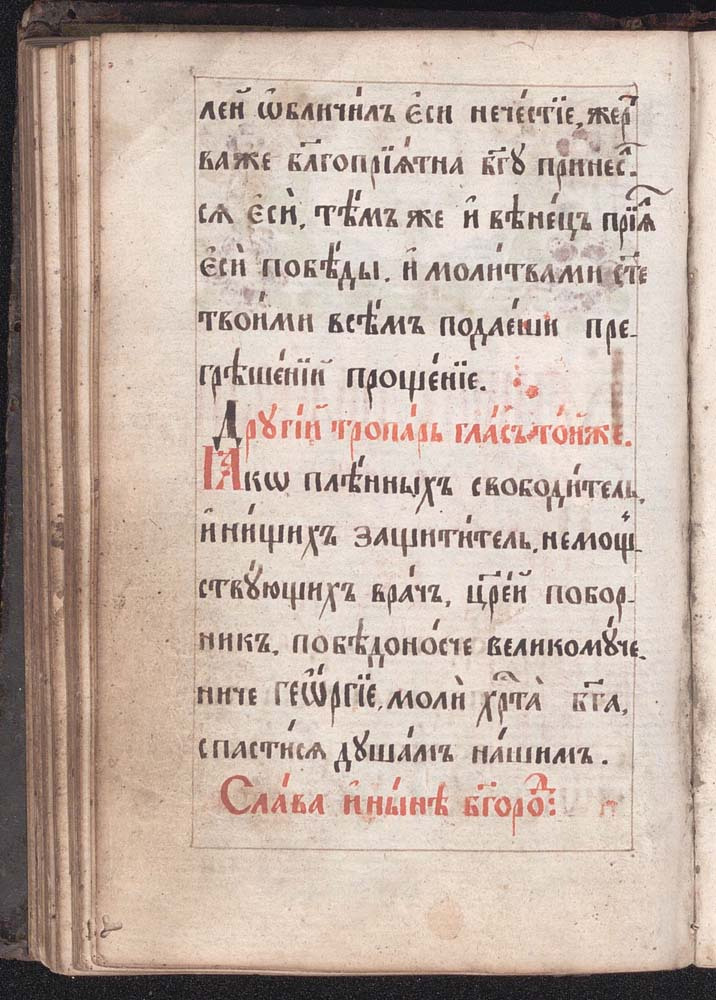 лей ѡ҆бличи́лъ є҆сѝ нече́стїе, же́р̾
ва же бл҃гопрїѧ́тна бг҃ꙋ принесⷭ҇.
сѧ є҆сѝ, тѣ́мъ же и҆ вѣне́цъ прїѧ́л̾
є҆сѝ побѣ́ды. и҆ моли́твами ст҃е
твои́ми всѣ́мъ подае́ши пре-
грѣше́нїй проще́нїе.
Дрꙋгі́й тропа́рь гла́съ то́йже.
Ꙗ҆́кѡ плѣ́нныхъ свободи́тель,
и҆ ни́щихъ защити́тель, немощ-
ствꙋ́ющихъ вра́чъ, цр҃е́й побо́р-
никъ, побѣдоно́сче великомꙋ́че-
ниче гео́ргїе, молѝ хр҃та̀ бг҃а,
спасти́сѧ дꙋша́мъ на́шимъ.
Сла́ва и҆ ны́нѣ бг҃оро́дⷣ: